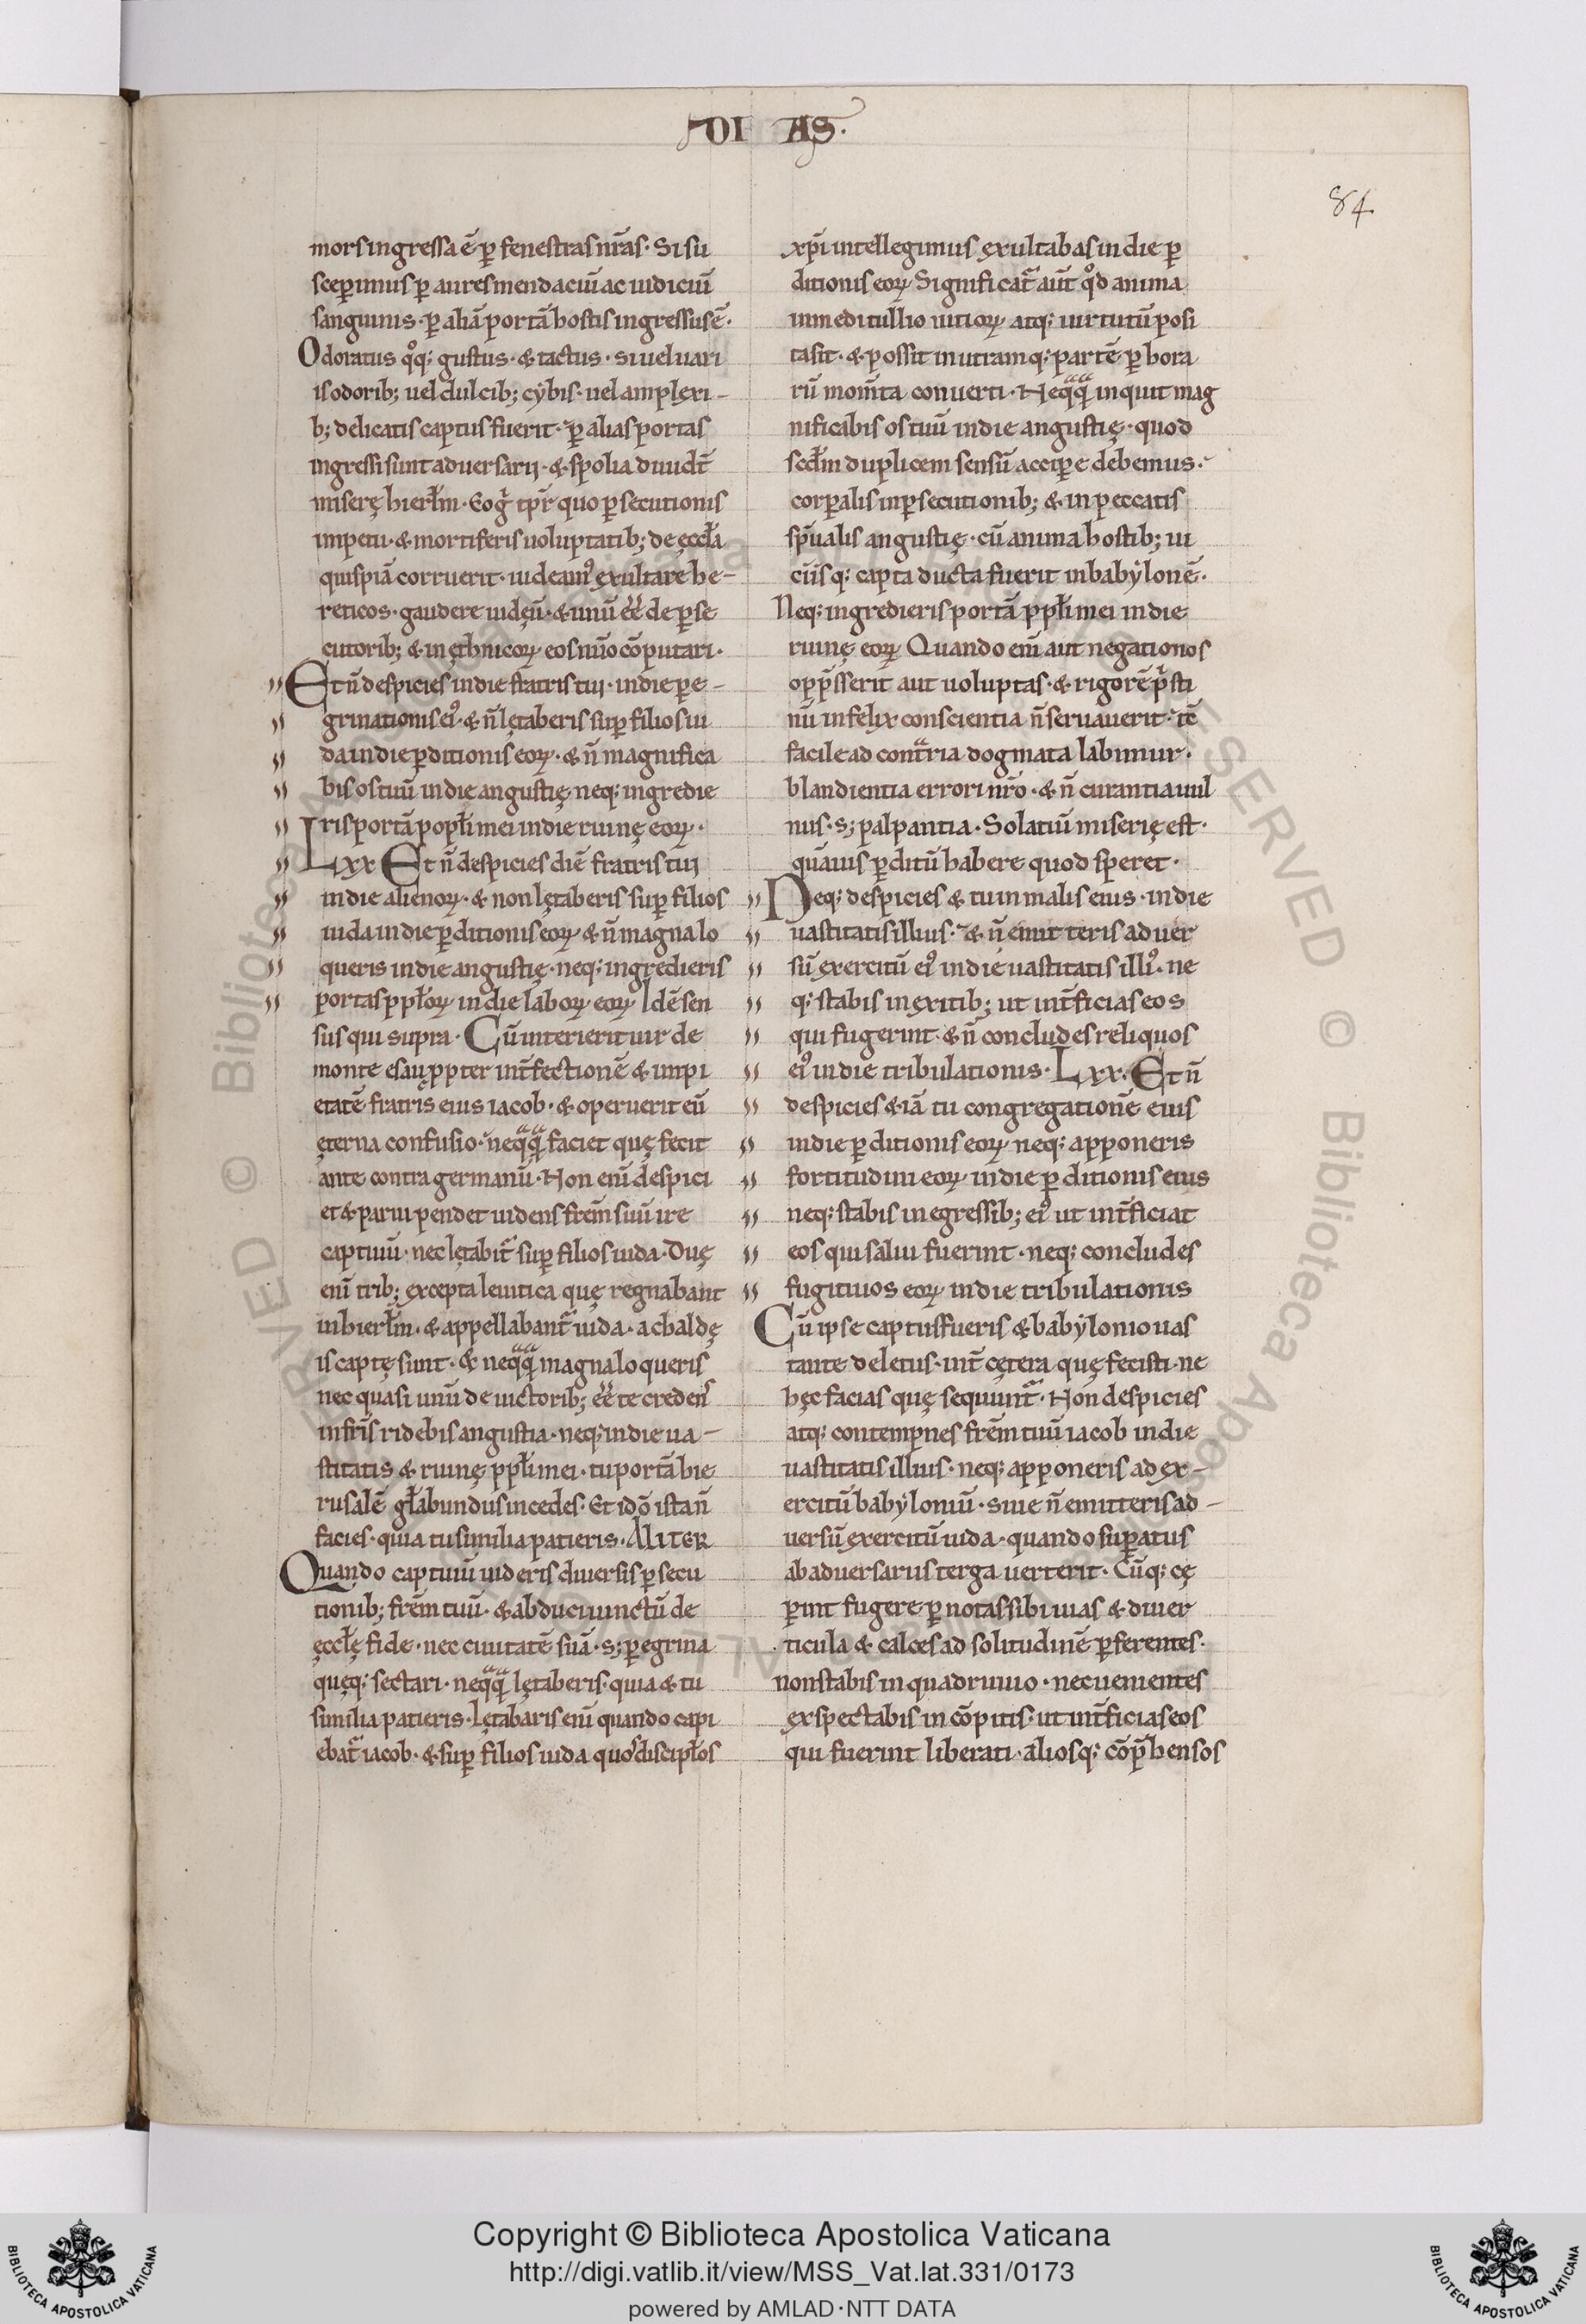 DI AS.
84
mors ingressa ē ꝑ fenestras nr̄as. Si su
sceꝑimus ꝑ aures mendaciū ac iudiciū
sanguinis. ꝑ aliā portā hostis ingressus ē.
Odoratus qͦq; gustus. & tactus. si uel uari
is odorib; uel dulcib; cẏbis. uel amplexi-
b; delicatis captus fuerit. ꝑ alias portas
ingressi sunt aduersarij. & spolia diuidt̄
miserę hierłm. Eog̛ tp̄r quo ꝑsecutionis
impetu. & mortiferis uoluptatib; de ęccła
quispiā corruerit. uideamꝰ exultare he-
reticos. gaudere iudęū. & unū ee͞ de ꝑse
cutorib; & in ęthnicoꝝ eos nūo cōputari.
Et n̄ despicies in die fratris tui. in die ꝑe-
grinationis eiꝰ. & n̄ lętaberis suꝑ filios iu
da in die ꝑditionis eoꝝ. & n̄ magnifica
bis os tuū in die angustię neq; ingredie
ris portā popłi mei in die ruinę eoꝝ.
Lxx Et n̄ despicies diē fratris tui
in die alienoꝝ. & non lętaberis suꝑ filios
iuda in die ꝑditionis eoꝝ & n̄ magna lo
queris in die angustię. neq; ingredieris
portas ppłoꝝ in die laboꝝ eoꝝ Idē sen
sus qui supra. Cū interierit uir de
monte esau ꝓpter int̄fectionē & impi
etatē fratris eius iacob. & operuerit eū
ęterna confusio. neqͣqͣ faciet quę fecit
ante contra germanū. Non enī despici
et & parui pendet uidens frēm suū ire
captiuū. nec lętabit̛ suꝑ filios iuda. Duę
enī trib; excepta leuitica quę regnabant
in hierłm. & appellabant̛ iuda. a chaldę
is captę sunt. & neqͣqͣ magna loqueris
nec quasi unū de uictorib; ee͞ te credens
in frīs ridebis angustia. neq; in die ua-
stitatis & ruinę ppłi mei. tu portā hie
rusalē głabundus incedes. Et idō ista n̄
facies. quia tu similia patieris. ALITER
Quando captiuū uideris diuersis ꝑsecu
tionib; frēm tuū. & abduci uinctū de
ęccłę fide. nec ciuitatē suā. s; ꝑegrina
quęq; sectari. neqͣqͣ lętaberis. quia & tu
similia patieris. Lętabaris enī quando capi
ebat̛ iacob. & suꝑ filios iuda quos discipłos
xp̄i intellegimus exultabas in die ꝑ
ditionis eoꝝ Significat̛ aut̄ qͦd anima
in meditullio uitioꝝ atq; uirtutū posi
ta sit. & possit in utramq; partē ꝑ hora
rū mom̄ta conuerti. Neqͣqͣ inquit mag
nificabis os tuū in die angustię. quod
scd̄m duplicem sensū acciꝑe debemus.
corꝑalis in ꝑsecutionib; & in peccatis
sp̄ualis angustię. cū anima hostib; ui
ciisq; capta ducta fuerit in babẏlonē.
Neq; ingredieris portā ppłi mei in die
ruinę eoꝝ Quando enī aut negatio nos
opp̄sserit aut uoluptas. & rigorē xp̄isti
nū infelix conscientia n̄ seruauerit. tē
facile ad contͣria dogmata labimur.
blandientia errori nr̄o. & n̄ curantia uul
nus. s; palpantia. Solatiū miserię est.
quāuis ꝑditū habere quod speret.
Neq; despicies & tu in malis eius. in die
uastitatis illius. & n̄ emitteris aduer
sū exercitū eiꝰ in die uastitatis illiꝰ. ne
q; stabis in exitib; ut int̄ficias eos
qui fugerint. & n̄ concludes reliquos
eiꝰ in die tribulationis. Lxx. Et n̄
despicies & iā tu congregationē eius
in die ꝑditionis eoꝝ neq; apponeris
fortitudini eoꝝ in die ꝑditionis eius
neq; stabis in egressib; eiꝰ ut int̄ficiat
eos qui salui fuerint. neq; concludes
fugitiuos eoꝝ in die tribulationis
Cū ipse captus fueris & babẏlonio uas
tante deletus. int̄ cętera quę fecisti. ne
hęc facias quę sequunt̛. Non despicies
atq; contempnes frēm tuū iacob in die
uastitatis illius. neq; apponeris ad ex-
ercitū babẏloniū. siue n̄ emitteris ad-
uersū exercitū iuda. quando suꝑatus
ab aduersariis terga uerterit. Cūq; cę
ꝑint fugere ꝑ notas sibi uias & diuer
ticula & calces ad solitudinē ꝑferentes.
non stabis in quadriuuo. nec uenientes
exspectabis in cōpitis. ut int̄ficias eos
qui fuerint liberati. aliosq; cōp̄hensos
Copyright © Biblioteca Apostolica Vaticana
http://digi.vatlib.it/view/MSS_Vat.lat.331/0173
powered by AMLAD·NTT DATA
BIBLIOTECA APOSTOLICA VATICANA
BIBLIOTECA APOSTOLICA VATICANA